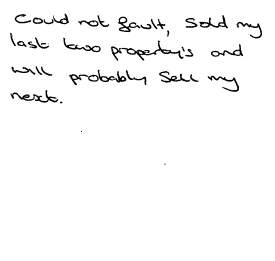 Could not fault, Sold my
last two property's and
will probably Sell my
next.